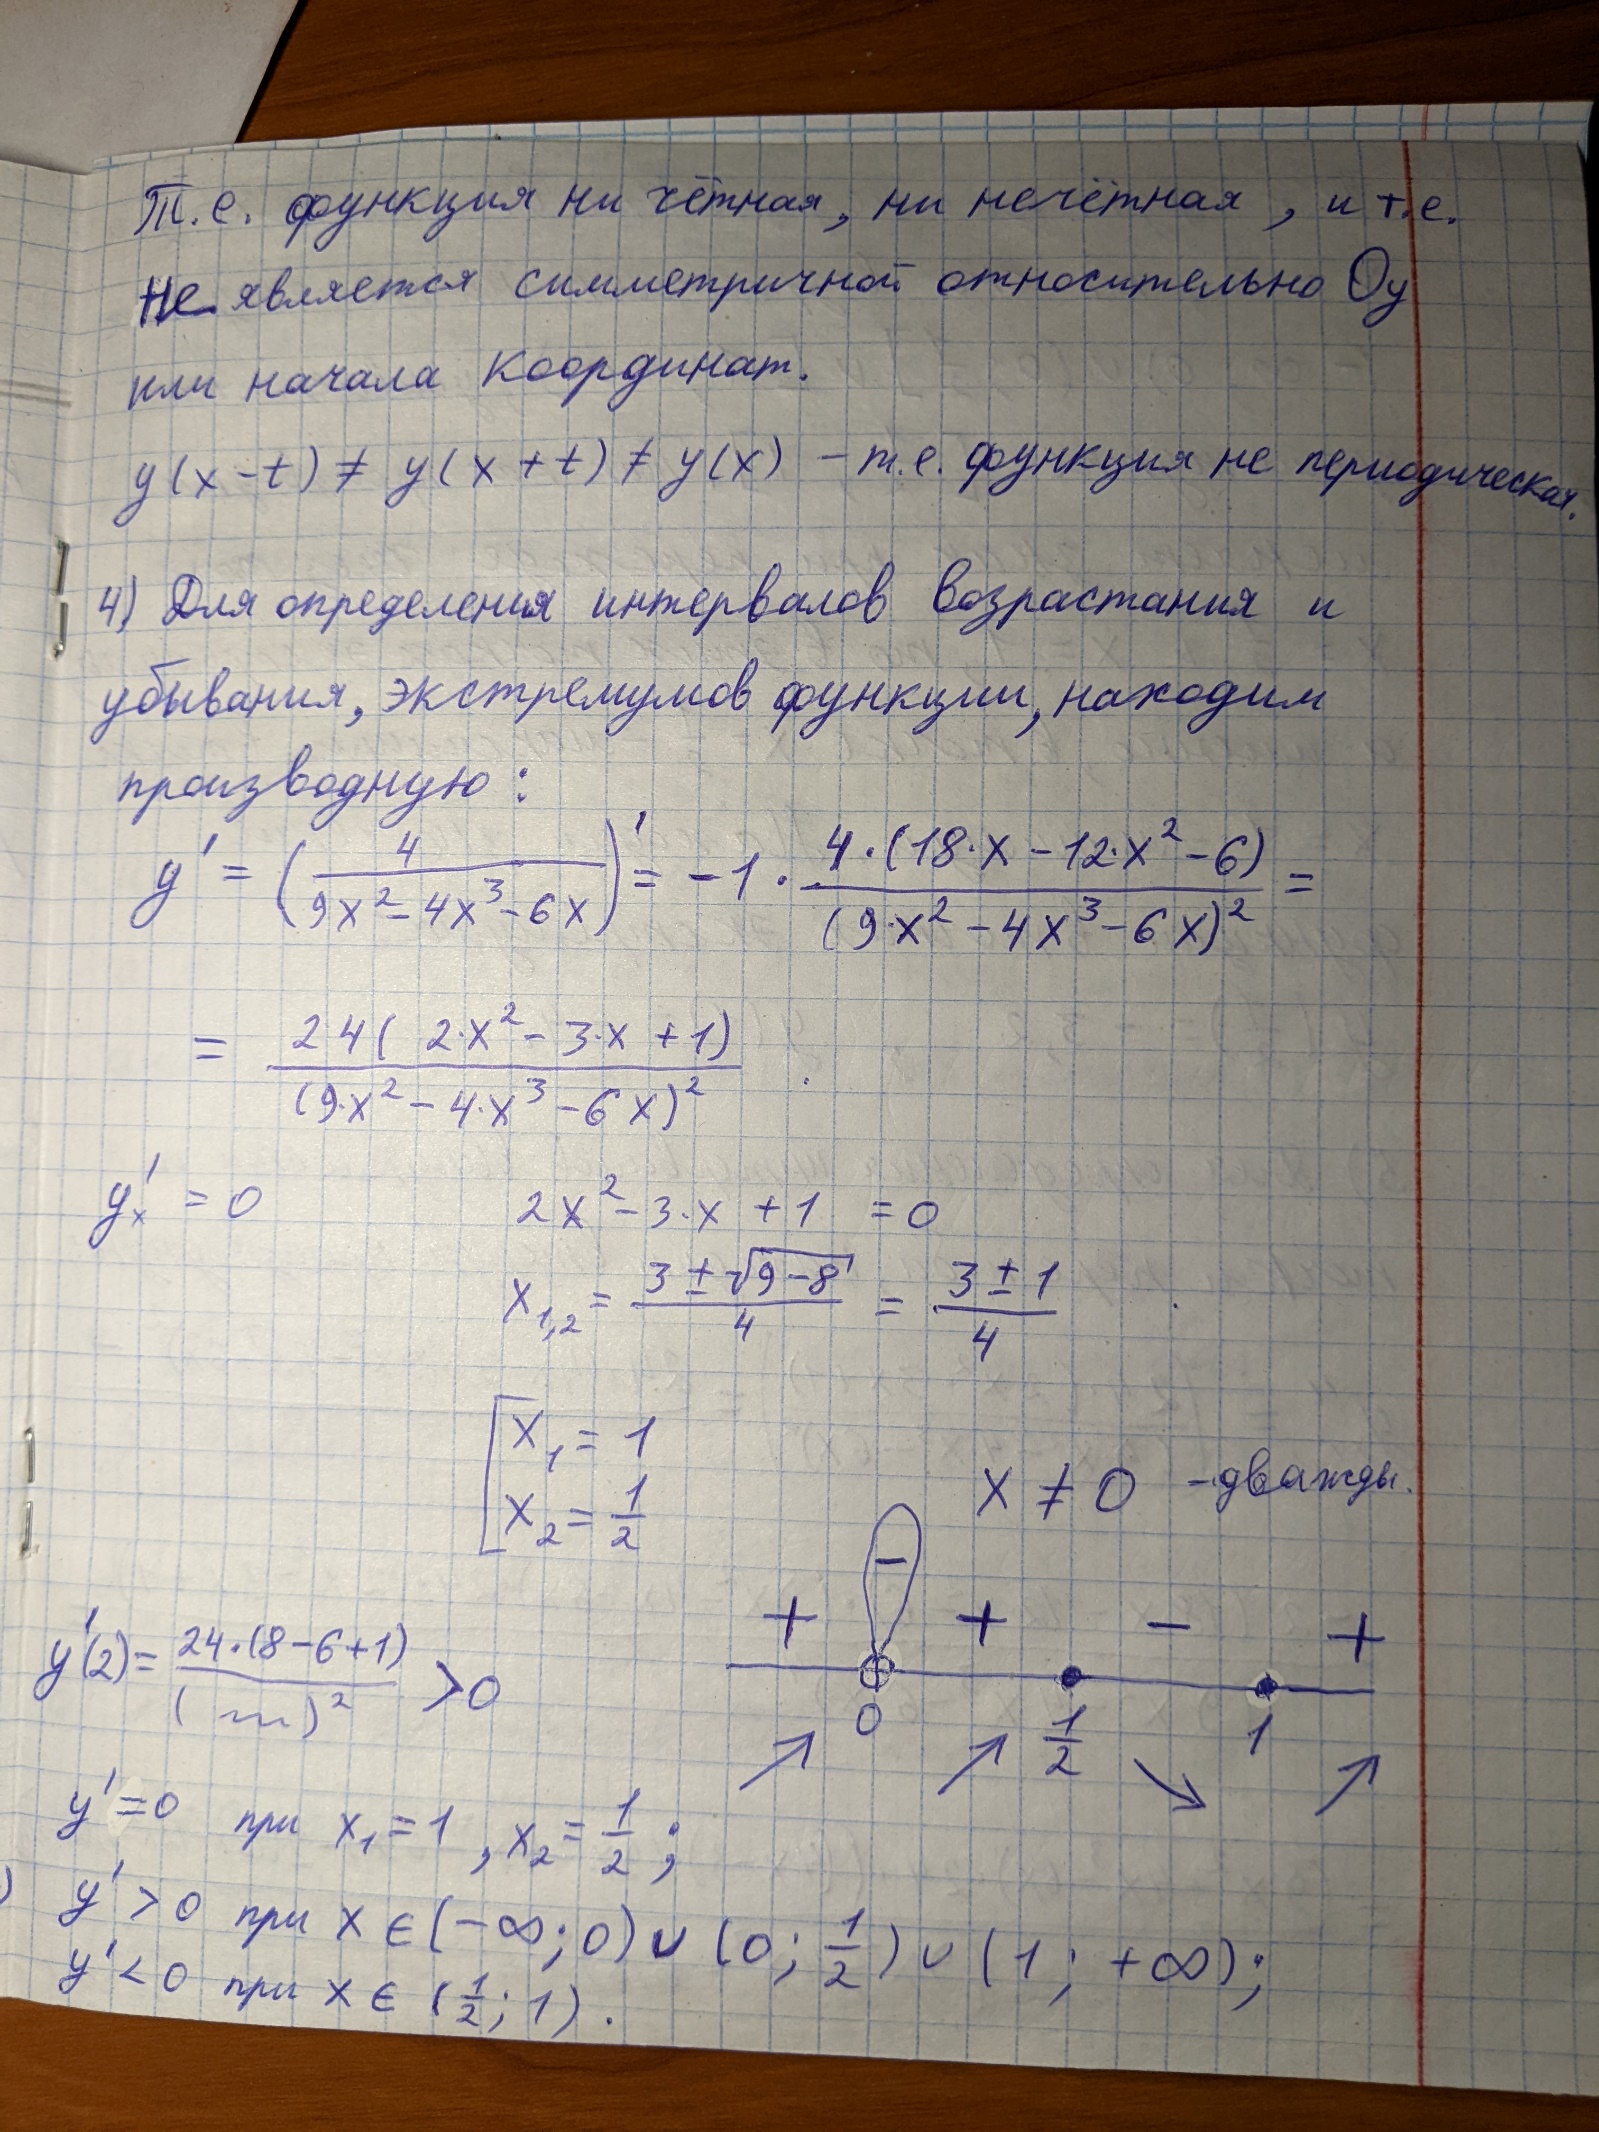 Т.е. функция ни чётная, ни нечётная, и т.е.
не является симметричной относительно Oy
или начала координат.
y(x-t) ≠ y(x+t) ≠ y(x) – т.е. функция не периодическая.
4) Для определения интервалов возрастания и
убывания, экстремумов функции, находим
производную:
y' = (4/(9x²-4x³-6x))' = -1 · (4·(18·x-12·x²-6))/((9·x²-4x³-6x)²) =
= (24(2·x²-3·x+1))/((9·x²-4·x³-6x)²)
y'ₓ = 0 2x²-3·x+1 = 0
x₁,₂ = (3±√(9-8))/4 = (3±1)/4
[x₁ = 1
x₂ = 1/2
x ≠ 0 - дважды.
-
+ + - +
0 1/2 1
↗ ↗ ↘ ↗
y'(2) = (24·(8-6+1))/( )² > 0
y'=0 при x₁=1, x₂=1/2;
y' > 0 при x ∈ (-∞; 0) ∪ (0; 1/2) ∪ (1; +∞);
y' < 0 при x ∈ (1/2; 1).